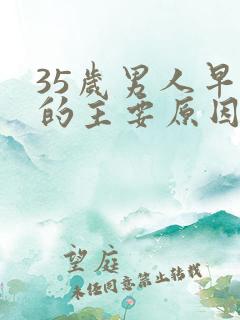 35岁男人早
的主要原因
望庭
未经同意禁止转载